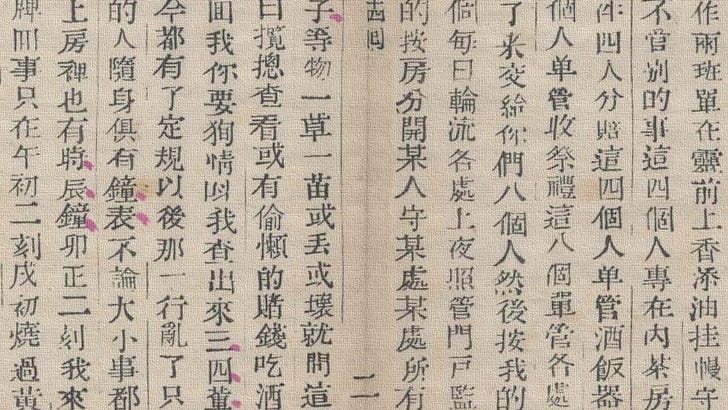 作兩班單在靈前上香添油挂幔守
不管别的事這四個人專在内茶房
件四人分賠這四個人单管酒飯器
個人单管收祭禮這八個單管各處
了來交給你們八個人然後按我的
個每日輪流各處上夜照管門戸監
的按房分開某人守某處某處所有
四囘
二
子等物一草一苗或丢或壞就問這
日攬摠查看或有偷懶的賭錢吃酒
面我你要狥情叫我查出來三四軰
今都有了定規以後那一行亂了只
的人隨身俱有鐘表不論大小事都
上房裡也有時辰鐘卯正二刻我來
牌囘事只在午初二刻戌初燒過黃